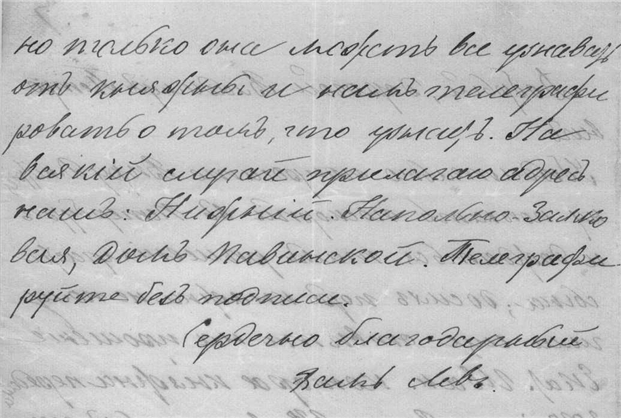 но только она можетъ все узнавать
отъ княжны и намъ телеграфи
ровать о томъ, что узнаетъ. На
всякій случай прилагаю адресъ
нашъ: Нижній. Напольно-Замко
вая, домъ Каванской. Телеграфи
руйте безъ подписи.
Сердечно благодарный
Вамъ Левъ.